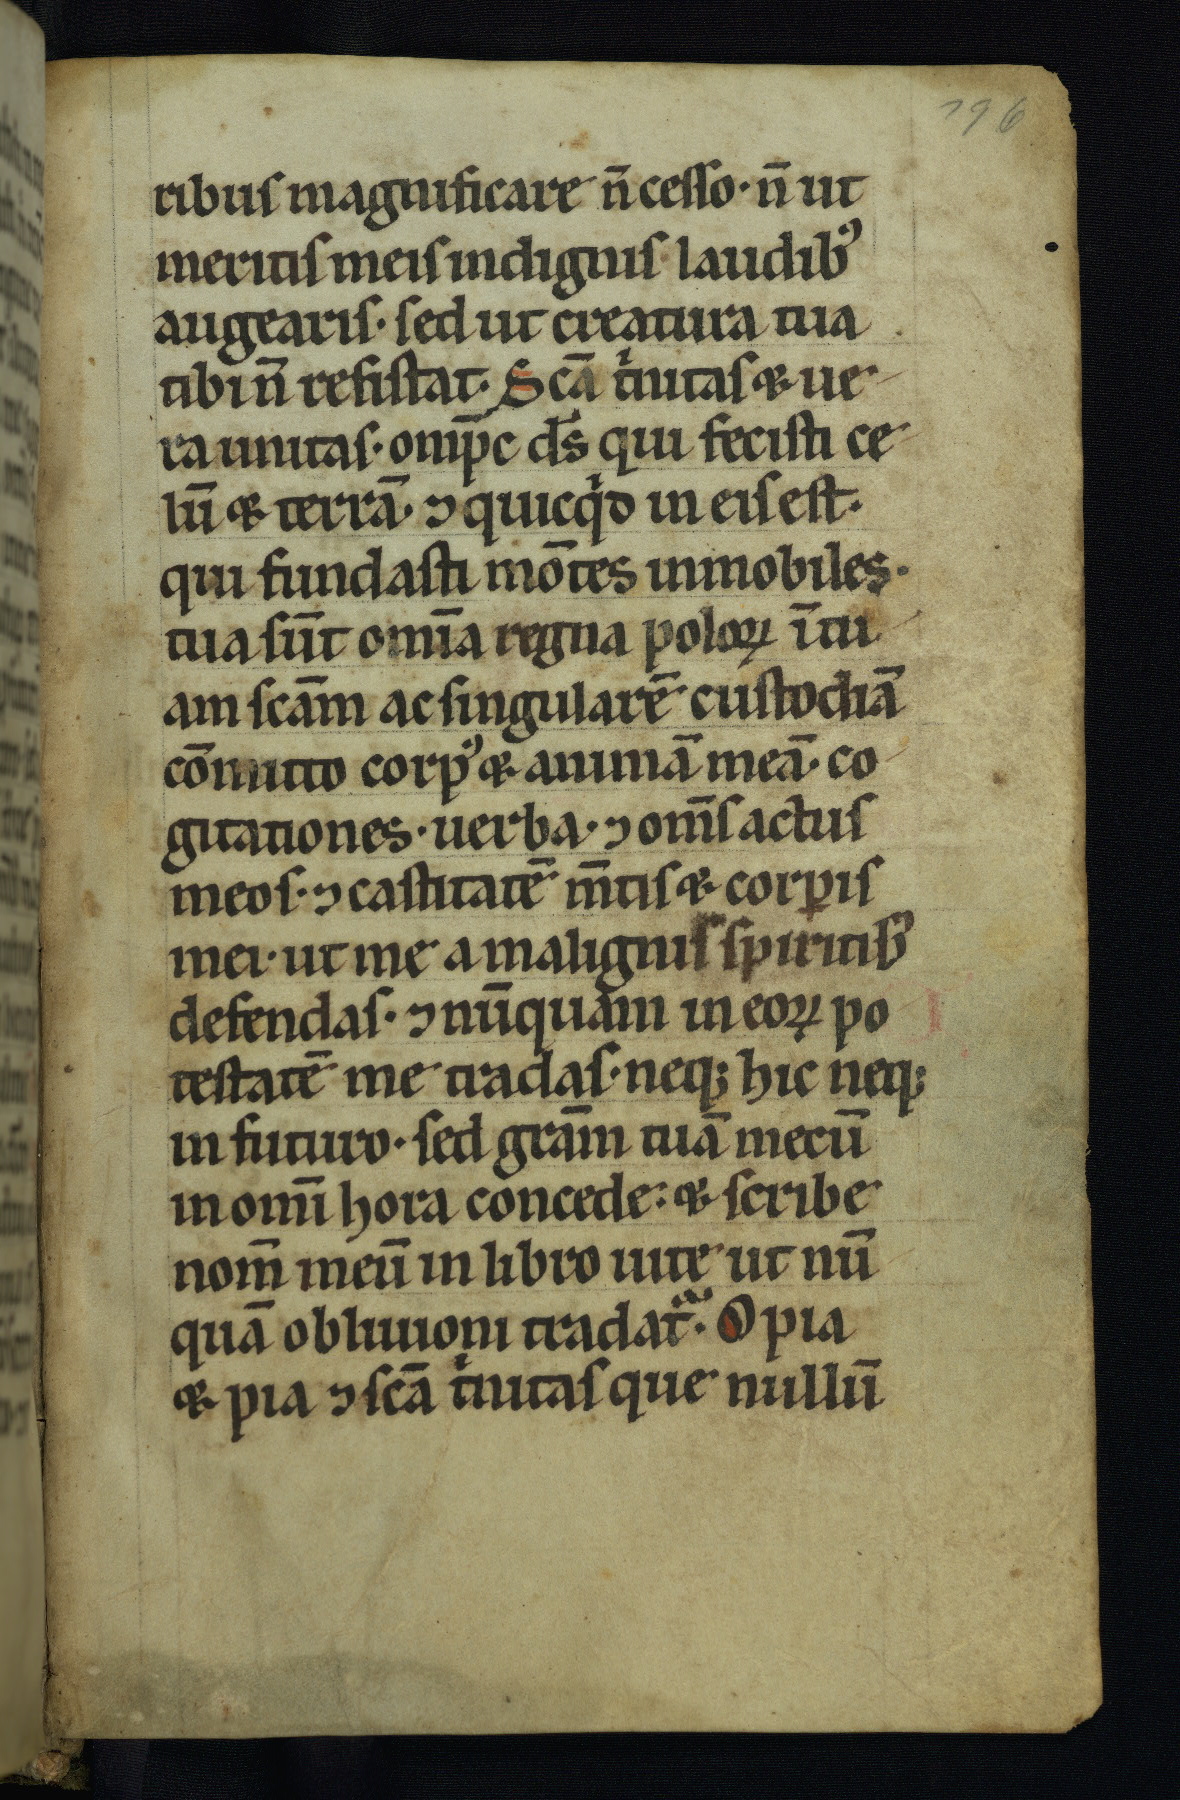 196
ribus magnificare n̄ cesso· n̄ ut
meritis meis indignis laudibꝰ
augearis· sed ut creatura tua
tibi n̄ resistat· Scā tͥnitas & ue
ra unitas· omp̄c ds̄ qui fecisti ce
lū & terrā· ⁊ quicqͥd in eis est·
qui fundasti mōtes inmobiles·
tua sūt om̄ia regna poloꝝ ī tu
am scām ac singularē custodiā
cōmitto corpꝰ & animā meā· co
gitationes· uerba· ⁊ om̄s actus
meos· ⁊ castitatē m̄tis & corꝑis
mei· ut me a malignis spiritibꝰ
defendas· ⁊ nūquam in eoꝝ po
testatē me tradas· neqꝫ hic neqꝫ
in futuro· sed grām tuā mecū
in omī hora concede: & scribe
nom̄ meū in libro uite ut nū
quā obliuioni tradat᷑· O pia
& pia ⁊ scā tͥnitas que nullū